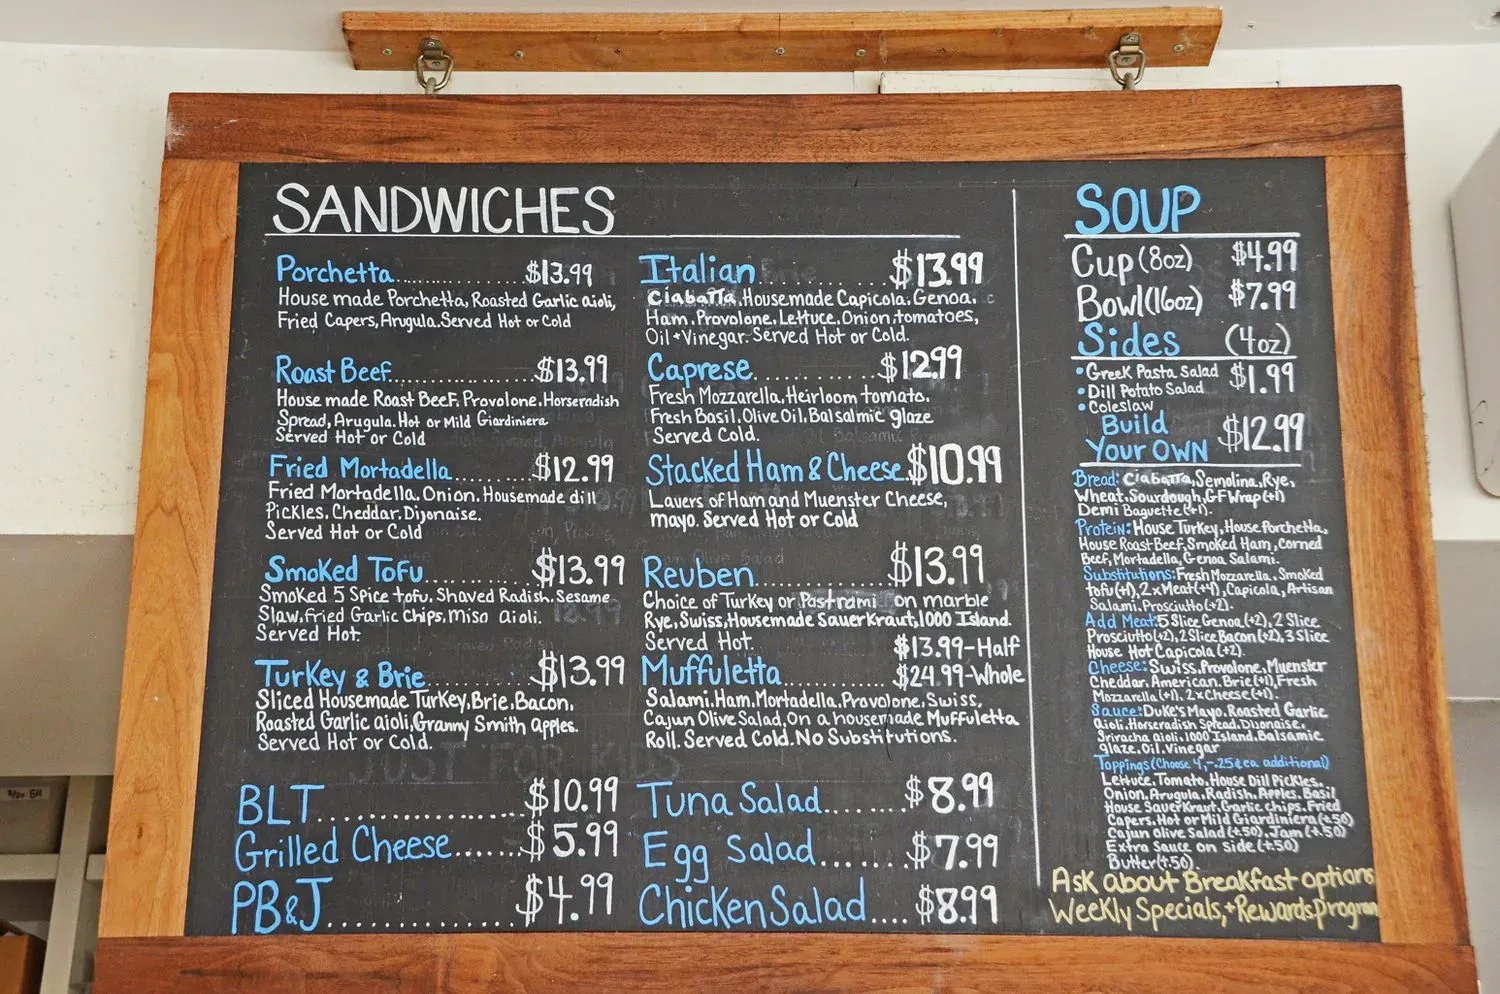 SANDWICHES
Porchetta..............$13.99
House made Porchetta, Roasted Garlic aioli,
Fried Capers, Arugula. Served Hot or Cold
Roast Beef..................$13.99
House made Roast Beef, Provolone, Horseradish
Spread, Arugula. Hot or Mild Giardiniera
Served Hot or Cold
Fried Mortadella..........$12.99
Fried Mortadella. Onion. Housemade dill
Pickles. Cheddar. Dijonaise.
Served Hot or Cold
Smoked Tofu..............$13.99
Smoked 5 Spice tofu. Shaved Radish. Sesame
Slaw, fried Garlic Chips, Miso aioli.
Served Hot.
Turkey & Brie..............$13.99
Sliced Housemade Turkey, Brie, Bacon,
Roasted Garlic aioli, Granny Smith apples.
Served Hot or Cold.
BLT......................$10.99
Grilled Cheese.......$5.99
PB&J..................$4.99
Italian..............$13.99
Ciabatta. Housemade Capicola. Genoa.
Ham. Provolone. Lettuce. Onion. tomatoes,
Oil + Vinegar. Served Hot or Cold.
Caprese..............$12.99
Fresh Mozzarella, Heirloom tomato.
Fresh Basil. Olive Oil. Balsalmic glaze
Served Cold.
Stacked Ham & Cheese..$10.99
Layers of Ham and Muenster Cheese,
mayo. Served Hot or Cold
Reuben................$13.99
Choice of Turkey or Pastrami on marble
Rye, Swiss, Housemade SauerKraut, 1000 Island.
Served Hot.
$13.99-Half
Muffuletta..............$24.99-Whole
Salami. Ham. Mortadella. Provolone. Swiss,
Cajun Olive Salad, On a housemade Muffuletta
Roll. Served Cold. No Substitutions.
Tuna Salad.......$8.99
Egg Salad.......$7.99
Chicken Salad....$8.99
SOUP
Cup (8oz) $4.99
Bowl (16oz) $7.99
Sides (4oz)
• Greek Pasta Salad $1.99
• Dill Potato Salad
• Coleslaw
Build
Your OWN $12.99
Bread: Ciabatta, Semolina, Rye,
Wheat, Sourdough, GF Wrap (+1)
Demi Baguette (+1).
Protein: House Turkey, House Porchetta,
House Roast Beef, Smoked Ham, Corned
Beef, Mortadella, Genoa Salami.
Substitutions: Fresh Mozzarella, Smoked
tofu (+1), 2x Meat (+4), Capicola, Artisan
Salami, Prosciutto (+2).
Add Meat: 5 Slice Genoa (+2), 2 Slice
Prosciutto (+2), 2 Slice Bacon (+2), 3 Slice
House Hot Capicola (+2)
Cheese: Swiss, Provolone, Muenster
Cheddar, American, Brie (+1), Fresh
Mozzarella (+1), 2x Cheese (+1).
Sauce: Duke's Mayo, Roasted Garlic
aioli, Horseradish Spread, Dijonaise,
Sriracha aioli, 1000 Island, Balsamic
glaze, Oil, Vinegar
Toppings (Choose 4, -.25¢ ea additional)
Lettuce, Tomato, House Dill Pickles,
Onion, Arugula, Radish, Apples, Basil
House SauerKraut, Garlic chips, Fried
Capers, Hot or Mild Giardiniera (+.50)
Cajun Olive Salad (+.50), Jam (+.50)
Extra Sauce on side (+.50)
Butter (+.50).
Ask about Breakfast options
Weekly Specials, + Rewards program